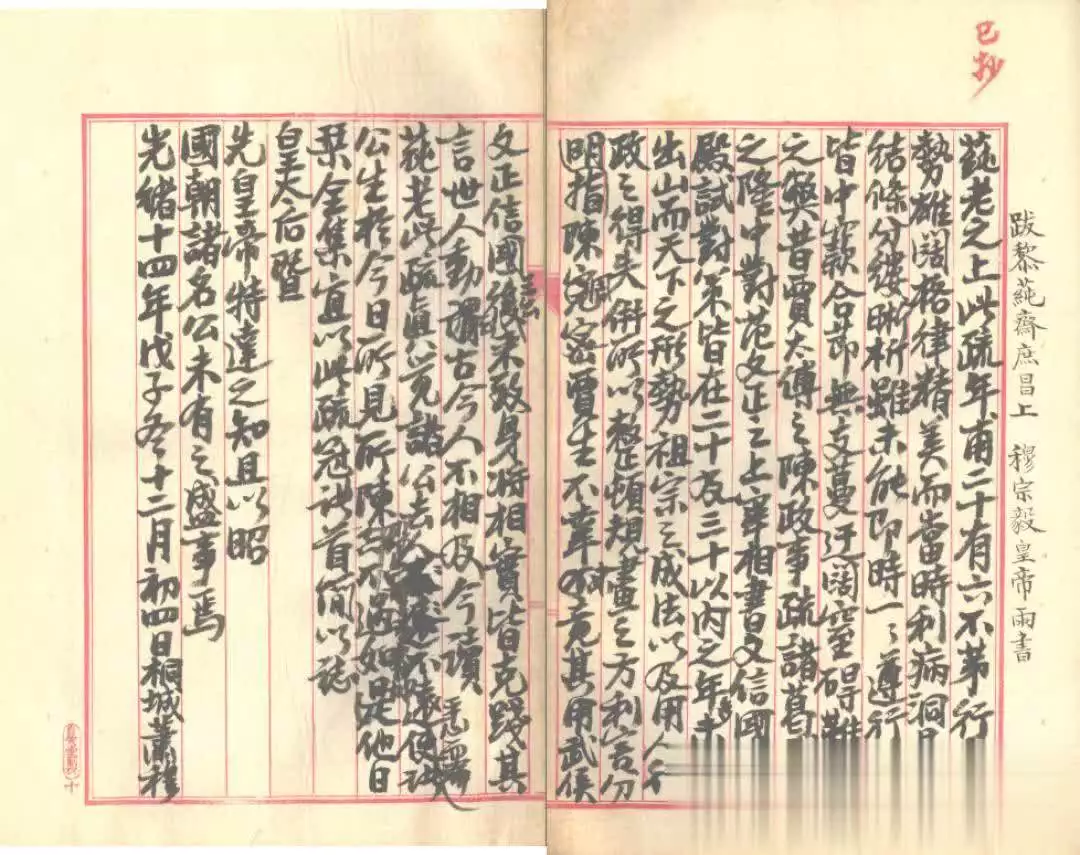 已抄
跋黎蒓齋庶昌上 穆宗毅皇帝兩書
蒓老之上此疏年甫二十有六不第行
勢雄闊格律精美而當時利病洞
結條分縷晰雖未能即時一々遵行
皆中窾合節無支蔓迂闊窒碍難
之獘昔賈太傅之陳政事疏諸葛
之隆中對范文正之上宰相書文信國
殿試對策皆在二十及三十以內之年
出山而天下之形勢祖宗之成法以及用人
政之得失併所以整頓規畫之方利害分
明指陳賈生不幸竟其用武侯
文正信國後来致身將相實皆克踐其
言世人動謂古今人不相及今讀
蒓老此疏真覺諸公去不遠使
公生於今日所見所陳不過如是他日
栞全集宜以此疏冠諸首簡以誌
皇太后暨
先皇帝特達之知且以昭
國朝諸名公未有之盛事焉
光緒十四年戊子冬十二月初四日桐城蕭穆
十